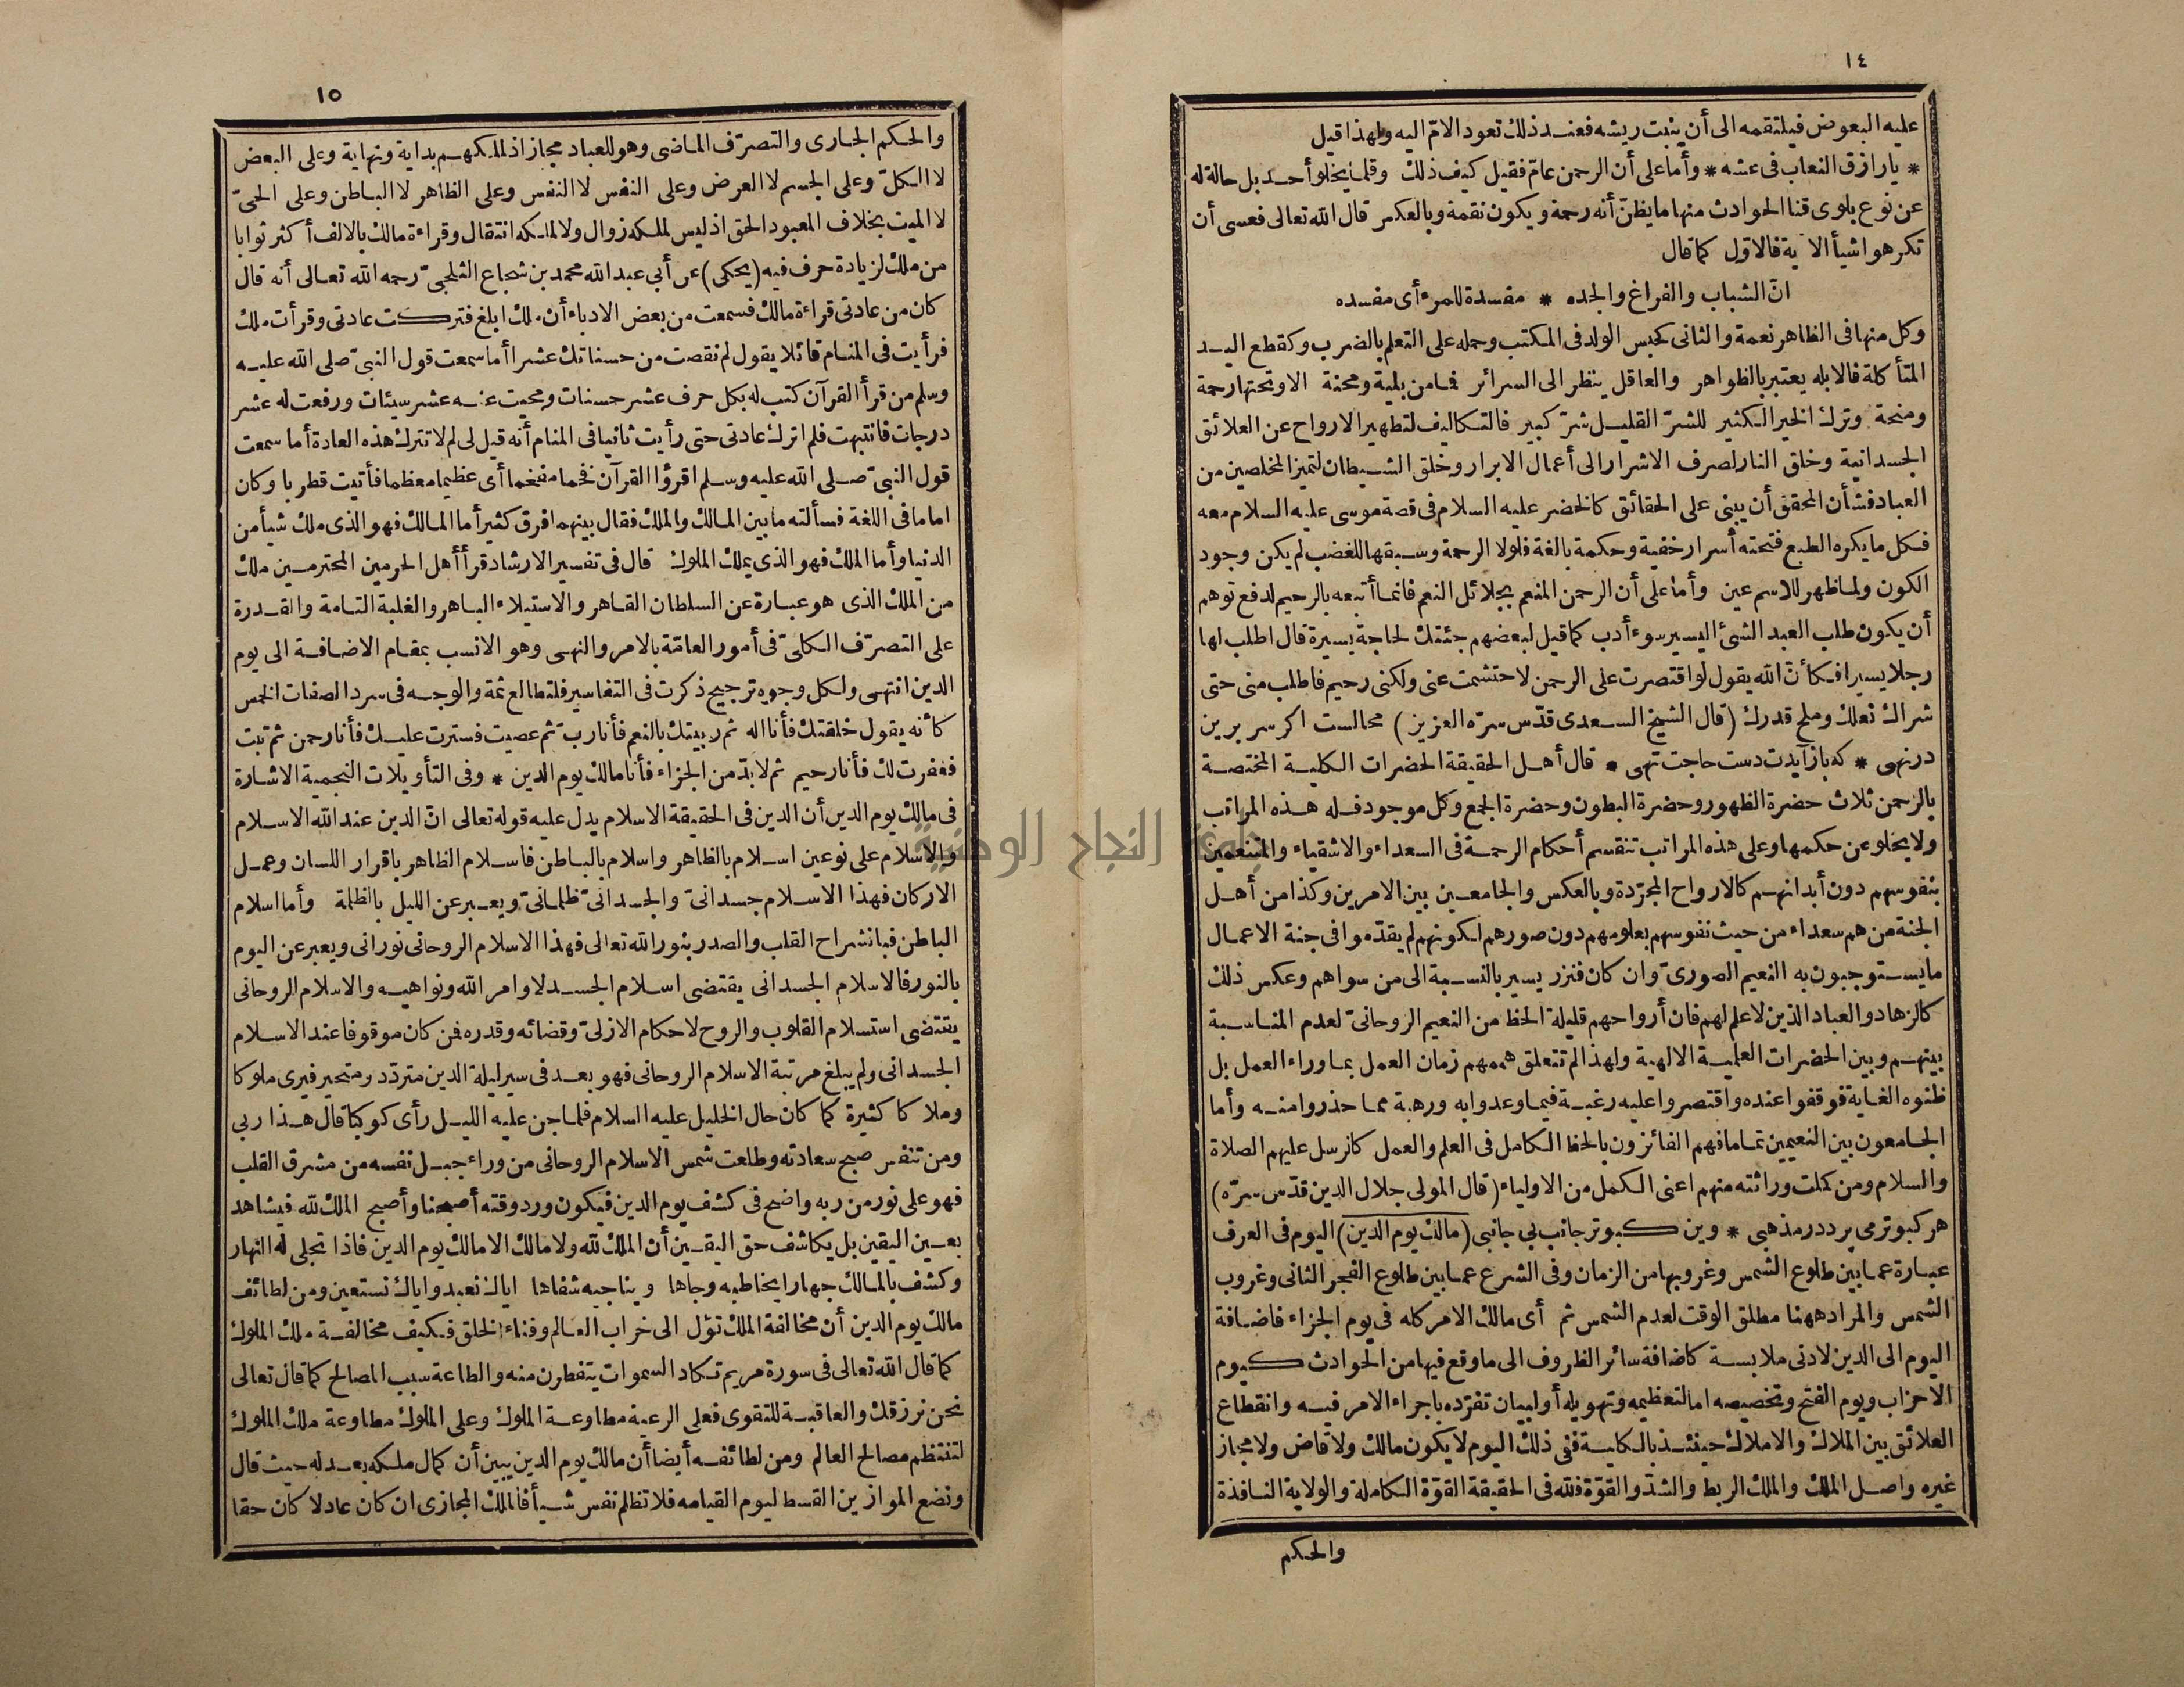 ١٤
عليه البعوض فيلتقمه الى أن ينبت ريشه فعند ذلك تعود الامّ اليه ولهذا قيل
* يارازق النعاب فى عشه * وأما على أن الرحمن عامّ فقيل كيف ذلك وقلما يخلو أحد بل حالة له
عن نوع بلوى قنا الحوادث منها ما يظنّ أنه رحمة ويكون نقمة وبالعكس قال الله تعالى فعسى أن
تكرهوا شيأ الآية فالاوّل كما قال
انّ الشباب والفراغ والجده * مفسدة للمرء أى مفسده
وكل منها فى الظاهر نعمة والثانى كحبس الولد فى المكتب وحمله على التعلم بالضرب وكقطع اليد
المتأكلة فالابله يعتبر بالظواهر والعاقل ينظر الى السرائر فما من بلية ومحنة الا وتحتها رحمة
ومنحة وترك الخير الكثير للشرّ القليل شرّ كبير فالتكاليف لتطهير الارواح عن العلائق
الجسدانية وخلق النار لصرف الاشرار الى أعمال الابرار وخلق الشيطان لتميز المخلصين من
العباد فشأن المحقق أن يبنى على الحقائق كالخضر عليه السلام فى قصة موسى عليه السلام معه
فكل ما يكره الطبع فتحته أسرار خفية وحكمة بالغة فلولا الرحمة وسبقها للغضب لم يكن وجود
الكون ولما ظهر للاسم عين وأما على أن الرحمن المنعم بجلائل النعم فانما أتبعه بالرحيم لدفع توهم
أن يكون طلب العبد الشئ اليسير سوء أدب كما قيل لبعضهم جئتك لحاجة يسيرة قال اطلب لها
رجلا يسيرا فكأنّ الله يقول لو اقتصرت على الرحمن لاحتشمت عنى ولكنى رحيم فاطلب منى حتى
شراك نعلك وملح قدرك (قال الشيخ السعدى قدّس سرّه العزيز) محالست اكر سر برين
درنهى * كه باز آيدت دست حاجت تهى * قال أهل الحقيقة الحضرات الكلية المختصة
بالرحمن ثلاث حضرة الظهور وحضرة البطون وحضرة الجمع وكل موجود فله هذه المراتب
ولا يخلو عن حكمها وعلى هذه المراتب تنقسم أحكام الرحمة فى السعداء والاشقياء والمتنعمين
بنفوسهم دون أبدانهم كالارواح المجرّدة وبالعكس والجامعين بين الامرين وكذا من أهل
الجنة من هم سعداء من حيث نفوسهم بعلومهم دون صورهم لكونهم لم يقدّموا فى جنة الاعمال
ما يستوجبون به النعيم الصورىّ وان كان فنزر يسير بالنسبة الى من سواهم وعكس ذلك
كالزهاد والعباد الذين لا علم لهم فان أرواحهم قليلة الحظ من النعيم الروحانىّ لعدم المناسبة
بينهم وبين الحضرات العلمية الالهية ولهذا لم تتعلق هممهم زمان العمل بما وراء العمل بل
ظنوه الغاية فوقفوا عنده واقتصروا عليه رغبة فيما وعدوا به ورهبة مما حذروا منه وأما
الجامعون بين النعيمين تماما فهم الفائزون بالحظ الكامل فى العلم والعمل كالرسل عليهم الصلاة
والسلام ومن كملت وراثته منهم اعنى الكمل من الاولياء (قال المولى جلال الدين قدّس سرّه)
هر كبوتر مى پرد در مذهبى * وين كبوتر جانب بى جانبى (مالك يوم الدين) اليوم فى العرف
عبارة عما بين طلوع الشمس وغروبها من الزمان وفى الشرع عما بين طلوع الفجر الثانى وغروب
الشمس والمراد ههنا مطلق الوقت لعدم الشمس ثم أى مالك الامر كله فى يوم الجزاء فاضافة
اليوم الى الدين لادنى ملابسة كاضافة سائر الظروف الى ما وقع فيها من الحوادث كيوم
الاحزاب ويوم الفتح وتخصيصه اما لتعظيمه وتهويله أو لبيان تفرّده باجراء الامر فيه وانقطاع
العلائق بين الملاك والاملاك حينئذ بالكلية ففى ذلك اليوم لا يكون مالك ولا قاض ولا مجاز
غيره واصل الملك والملك الربط والشدّ والقوّة فلله فى الحقيقة القوّة الكاملة والولاية النافذة
والحكم
١٥
والحكم الجارى والتصرّف الماضى وهو للعباد مجاز اذ لملكهم بداية ونهاية وعلى البعض
لا الكلّ وعلى الجسم لا العرض وعلى النفس لا النفس وعلى الظاهر لا الباطن وعلى الحىّ
لا الميت بخلاف المعبود الحق اذ ليس لملكه زوال ولا لملكه انتقال وقراءة مالك بالالف أكثر ثوابا
من ملك لزيادة حرف فيه (يحكى) عن أبى عبد الله محمد بن شجاع الثلجىّ رحمه الله تعالى أنه قال
كان من عادتى قراءة مالك فسمعت من بعض الادباء أن ملك ابلغ فتركت عادتى وقرأت ملك
فرأيت فى المنام قائلا يقول لم نقصت من حسناتك عشرا أما سمعت قول النبىّ صلى الله عليه
وسلم من قرأ القرآن كتب له بكل حرف عشر حسنات ومحيت عنه عشر سيئات ورفعت له عشر
درجات فانتبهت فلم اترك عادتى حتى رأيت ثانيا فى المنام أنه قيل لى لم لا تترك هذه العادة أما سمعت
قول النبىّ صلى الله عليه وسلم اقرؤا القرآن فخما مفخما أى عظيما معظما فأتيت قطربا وكان
اماما فى اللغة فسألته ما بين المالك والملك فقال بينهما فرق كثير أما المالك فهو الذى ملك شيأ من
الدنيا وأما الملك فهو الذى يملك الملوك قال فى تفسير الارشاد قرأ أهل الحرمين المحترمين ملك
من الملك الذى هو عبارة عن السلطان القاهر والاستيلاء الباهر والغلبة التامة والقدرة
على التصرّف الكلىّ فى أمور العامّة بالامر والنهى وهو الانسب بمقام الاضافة الى يوم
الدين انتهى ولكل وجوه ترجيح ذكرت فى التفاسير فلتطالع ثمة والوجه فى سرد الصفات الخمس
كأنه يقول خلقتك فأنا اله ثم ربيتك بالنعم فأنا رب ثم عصيت فسترت عليك فأنا رحمن ثم تبت
فغفرت لك فأنا رحيم ثم لا بدّ من الجزاء فأنا مالك يوم الدين * وفى التأويلات النجمية الاشارة
فى مالك يوم الدين أن الدين فى الحقيقة الاسلام يدل عليه قوله تعالى انّ الدين عند الله الاسلام
والاسلام على نوعين اسلام بالظاهر واسلام بالباطن فاسلام الظاهر باقرار اللسان وعمل
الاركان فهذا الاسلام جسدانىّ والجسدانىّ ظلمانىّ ويعبر عن الليل بالظلمة وأما اسلام
الباطن فبانشراح القلب والصدر بنور الله تعالى فهذا الاسلام الروحانى نورانى ويعبر عن اليوم
بالنور فالاسلام الجسدانى يقتضى اسلام الجسد لاوامر الله ونواهيه والاسلام الروحانى
يقتضى استسلام القلوب والروح لاحكام الازلىّ وقضائه وقدره فمن كان موقوفا عند الاسلام
الجسدانى ولم يبلغ مرتبة الاسلام الروحانى فهو بعد فى سير ليلة الدين متردّد ومتحير فيرى ملوكا
وملاكا كثيرة كما كان حال الخليل عليه السلام فلما جن عليه الليل رأى كوكبا قال هذا ربى
ومن تنفس صبح سعادته وطلعت شمس الاسلام الروحانى من وراء جبل نفسه من مشرق القلب
فهو على نور من ربه واضح فى كشف يوم الدين فيكون ورد وقته أصبحنا وأصبح الملك لله فيشاهد
بعين اليقين بل يكاشف حق اليقين أن الملك لله ولا مالك الا مالك يوم الدين فاذا تجلى له النهار
وكشف بالمالك جهارا يخاطبه وجاها ويناجيه شفاها اياك نعبد واياك نستعين ومن لطائف
مالك يوم الدين أن مخالفة الملك تؤل الى خراب العالم وفناء الخلق فكيف مخالفة ملك الملوك
كما قال الله تعالى فى سورة مريم تكاد السموات يتفطرن منه والطاعة سبب المصالح كما قال تعالى
نحن نرزقك والعاقبة للتقوى فعلى الرعية مطاوعة الملوك وعلى الملوك مطاوعة ملك الملوك
لتنتظم مصالح العالم ومن لطائفه أيضا أن مالك يوم الدين يبين أن كمال ملكه بعدله حيث قال
ونضع الموازين القسط ليوم القيامه فلا تظلم نفس شيأ فالملك المجازى ان كان عادلا كان حقا
النجاح الوطنية